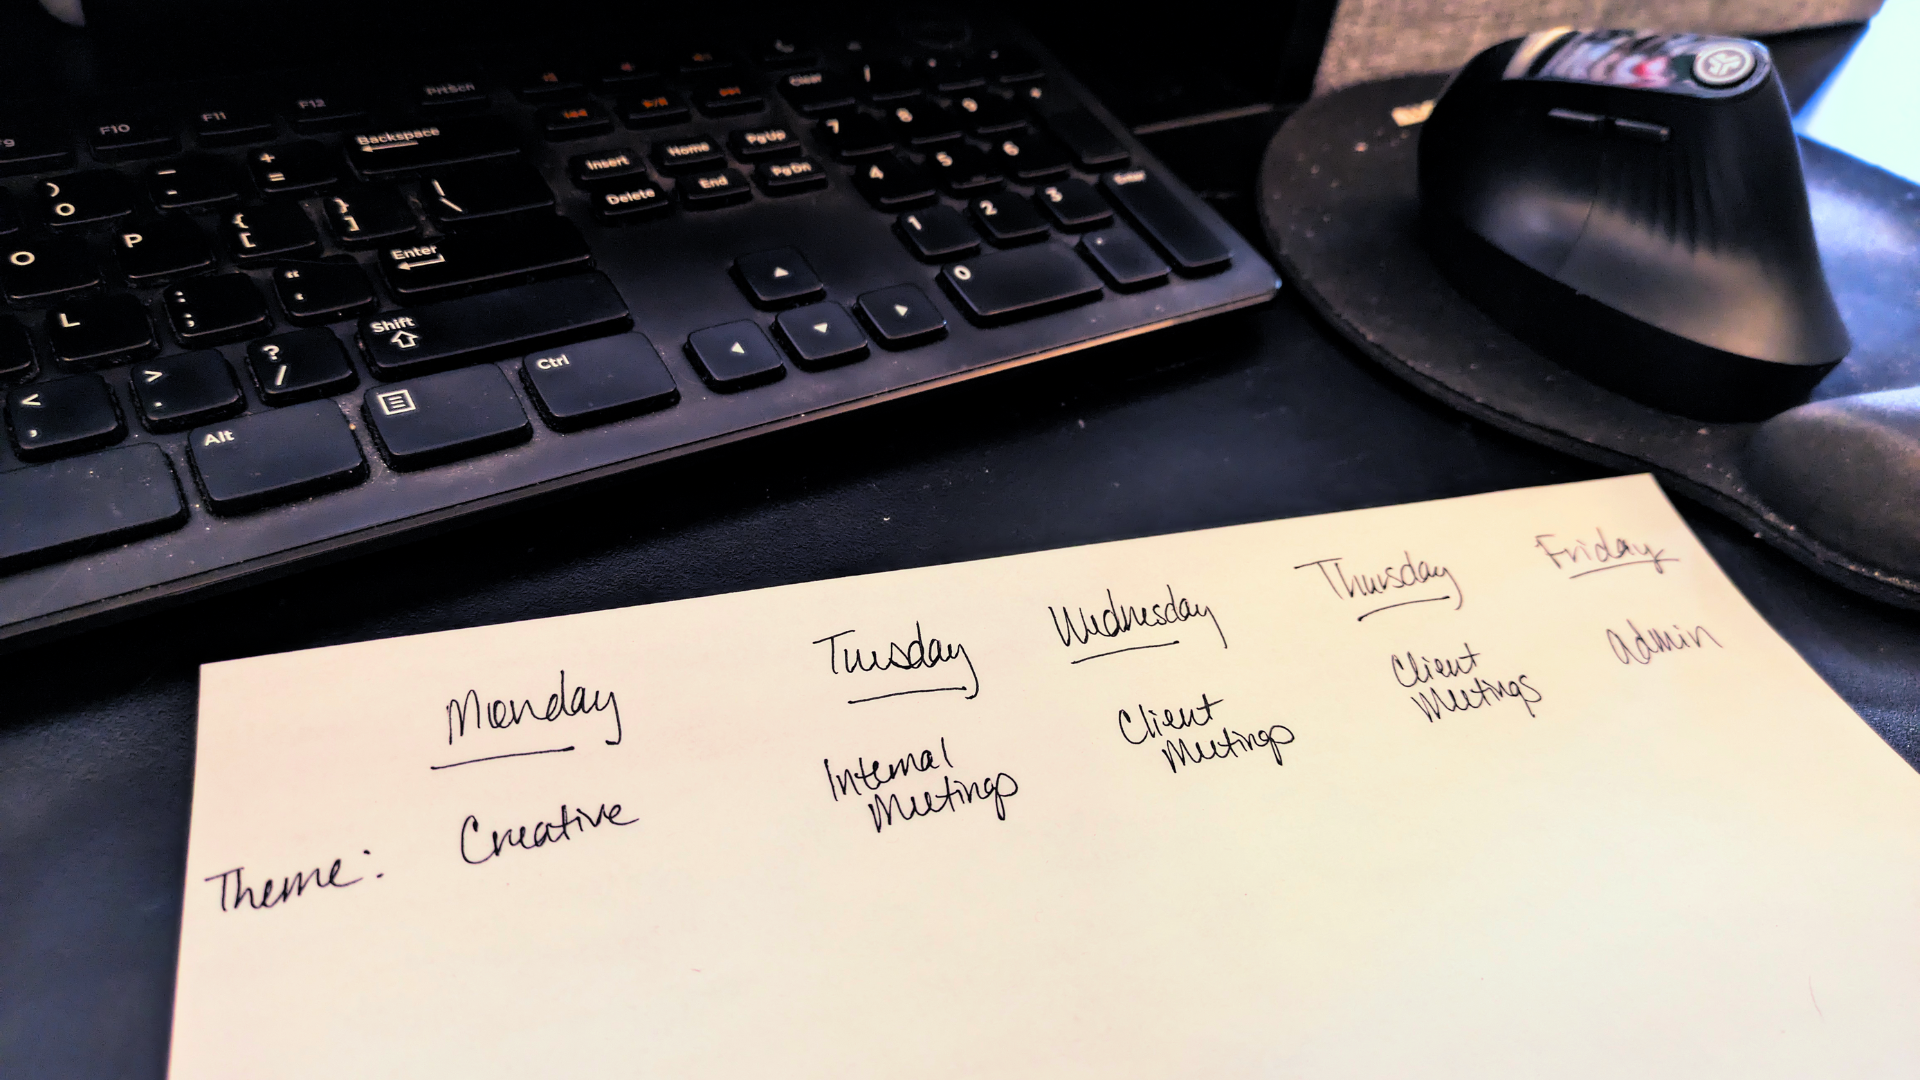 F9 F10 F11 F12 PrtScn
Backspace
Insert Home PgUp
Delete End PgDn
Clear / * -
7 8 9 +
4 5 6
1 2 3 Enter
0 .
) 0 _ - + =
O P { [ } ] | \
L : ; " ' Enter
< , > . ? / Shift
Alt Ctrl
Monday Tuesday Wednesday Thursday Friday
Theme: Creative Internal Meetings Client Meetings Client Meetings Admin